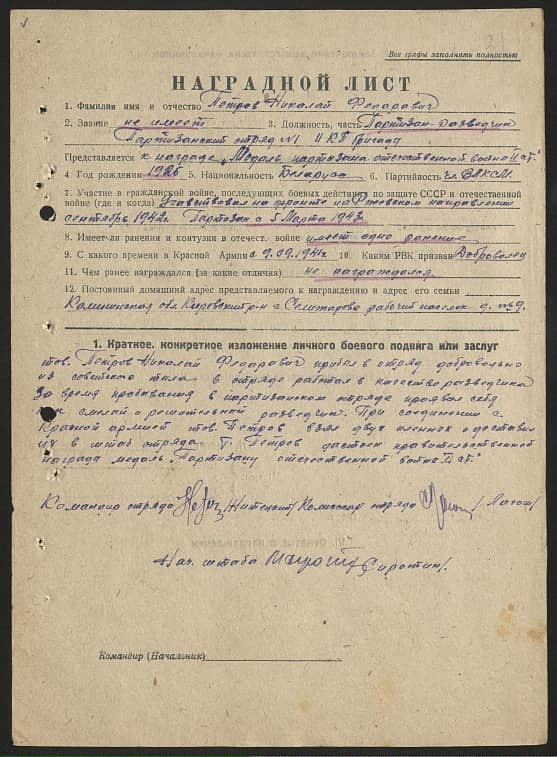 Все графы заполнять полностью
НАГРАДНОЙ ЛИСТ
1. Фамилия имя и отчество Петров Николай Федарович
2. Звание не имеет 3. Должность, часть Партизан-разведчик
Партизанский отряд №1 II К Б бригада
Представляется к награде „Медаль партизана отечественной войне II ст."
4. Год рождения 1926 5. Национальность Беларус 6. Партийность чл. ВЛКСМ.
7. Участие в гражданской войне, последующих боевых действиях по защите СССР и отечественной
войне (где и когда) Участвовал на фронте на Ржевском направлении
сентябрь 1942г. Партизан с 5 Марта 1943г.
8. Имеет-ли ранения и контузии в отечест. войне имеет одно ранение
9. С какого времени в Красной Армии с 9.09.1941г. 10. Каким РВК призван Доброволец
11. Чем ранее награждался (за какие отличия) не награждался.
12. Постоянный домашний адрес представляемого к награждению и адрес его семьи
Калининская обл. Кировский р-н г. Селижарова рабочий поселок д. №9.
1. Краткое, конкретное изложение личного боевого подвига или заслуг
тов. Петров Николай Федарович прибыл в отряд добровольно
из советского тыла в отряде работал в качестве разведчика
За время пребывания в партизанском отряде проявил себя
как смелый и решительный разведчик. При соединении с
Красной армией тов. Петров взял двух пленных и доставил
их в штаб отряда. Т. Петров достоен правительственной
награда медаль „Партизану отечественной войне II ст."
Командир отряда /Житецкий/ Комиссар отряда /Лагош/
Нач. штаба /Сиротин/.
Командир (Начальник)